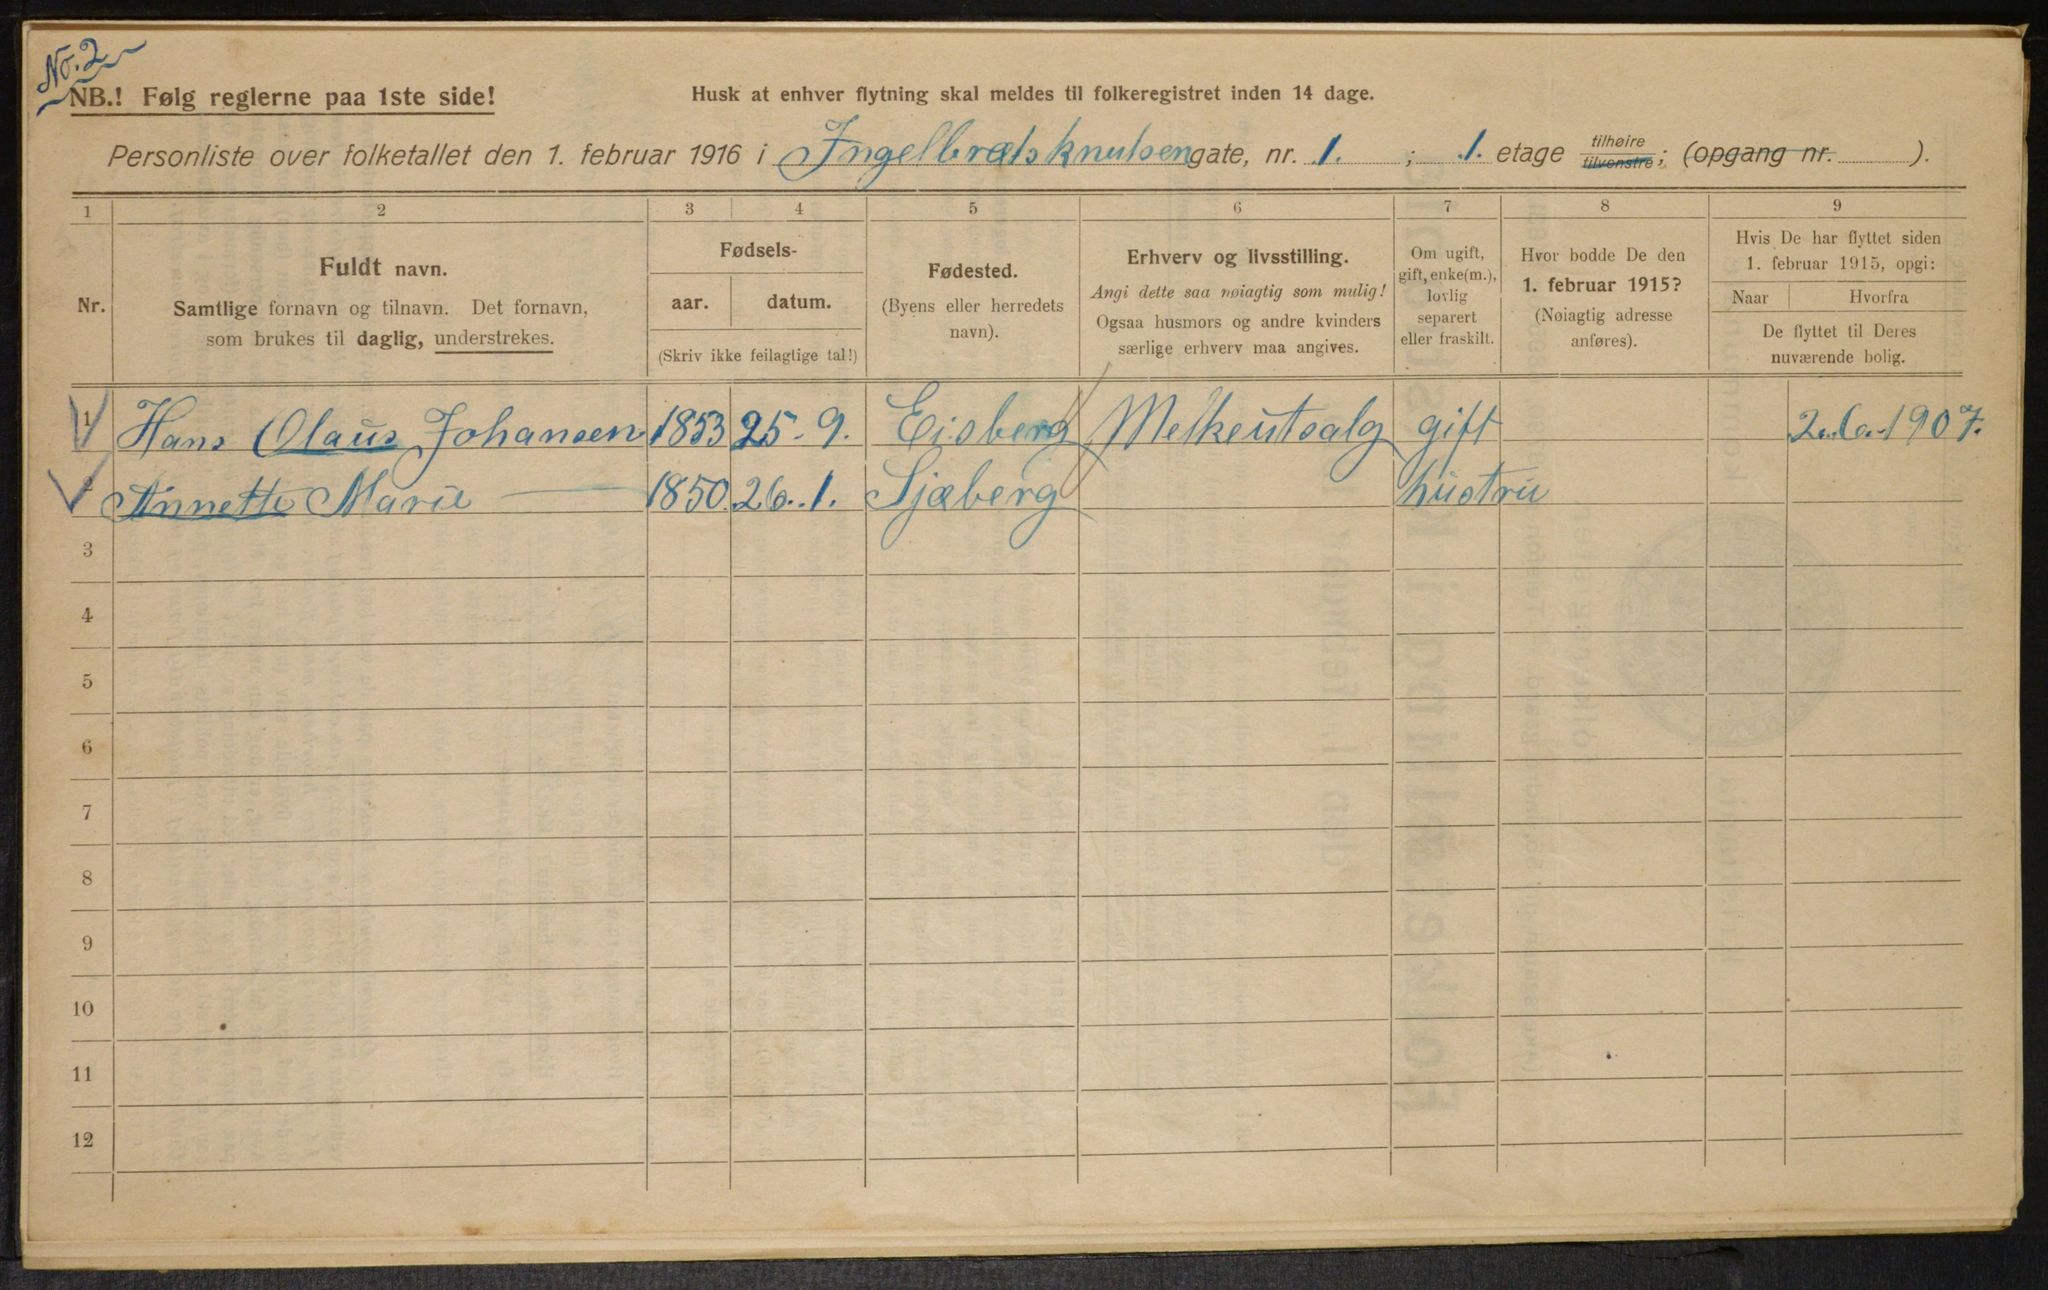 No. 2
NB.! Følg reglerne paa 1ste side!
Husk at enhver flytning skal meldes til folkeregistret inden 14 dage.
Personliste over folketallet den 1. februar 1916 i Ingelbrets knutsen gate, nr. 1. ; 1. etage tilhøire tilvenstre; (opgang nr. ).
1 2 3 4 5 6 7 8 9
Nr.
Fuldt navn.
Samtlige fornavn og tilnavn. Det fornavn,
som brukes til daglig, understrekes.
Fødsels-
aar. datum.
(Skriv ikke feilagtige tal!)
Fødested.
(Byens eller herredets
navn).
Erhverv og livsstilling.
Angi dette saa nøiagtig som mulig!
Ogsaa husmors og andre kvinders
særlige erhverv maa angives.
Om ugift,
gift, enke(m.),
lovlig
separert
eller fraskilt.
Hvor bodde De den
1. februar 1915?
(Nøiagtig adresse
anføres).
Hvis De har flyttet siden
1. februar 1915, opgi:
Naar Hvorfra
De flyttet til Deres
nuværende bolig.
1 Hans Olaus Johansen 1853 25-9. Eisberg Melkeutsalg gift 2.6.1907.
2 Annette Marie — 1850. 26.1. Sjæberg hustru
3
4
5
6
7
8
9
10
11
12